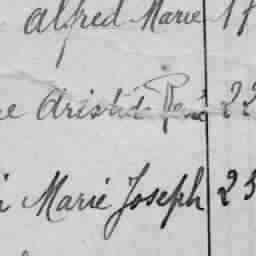 alfred Marie 18
e Aristid René 22
i Marie Joseph 23